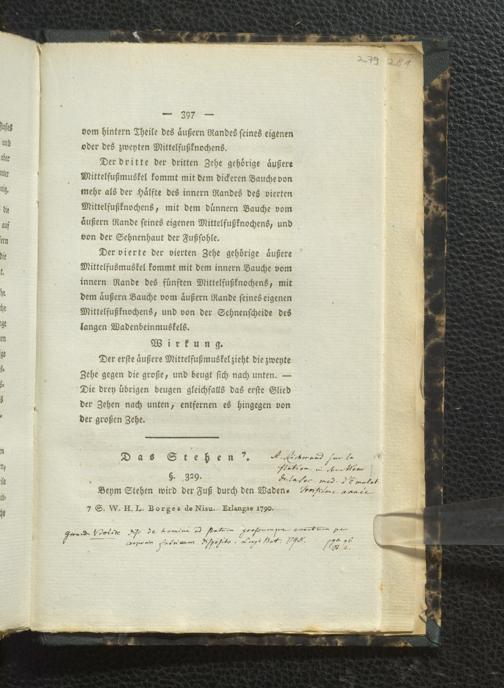 279 281
— 397 —
vom hintern Theile des äußern Randes seines eigenen
oder des zweyten Mittelfußknochens.
Der dritte der dritten Zehe gehörige äußere
Mittelfußmuskel kommt mit dem dickeren Bauche von
mehr als der Hälfte des innern Randes des vierten
Mittelfußknochens, mit dem dünnern Bauche vom
äußern Rande seines eigenen Mittelfußknochens, und
von der Sehnenhaut der Fußsohle.
Der vierte der vierten Zehe gehörige äußere
Mittelfusmuskel kommt mit dem innern Bauche vom
innern Rande des fünften Mittelfußknochens, mit
dem äußern Bauche vom äußern Rande seines eigenen
Mittelfußknochens, und von der Sehnenscheide des
langen Wadenbeinmuskels.
Wirkung.
Der erste äußere Mittelfußmuskel zieht die zweyte
Zehe gegen die große, und beugt sich nach unten. —
Die drey übrigen beugen gleichfalls das erste Glied
der Zehen nach unten, entfernen es hingegen von
der großen Zehe.
Das Stehen 7.
A. Richerand sur la
station in
de la soc. med. d'Emulat
troisieme année
§. 329.
Beym Stehen wird der Fuß durch den Waden-
7 S. W. H. L. Borges de Nisu. Erlangae 1790.
diss. de homine ad statum
fabricam disposito. Lugd Bat. 1795.